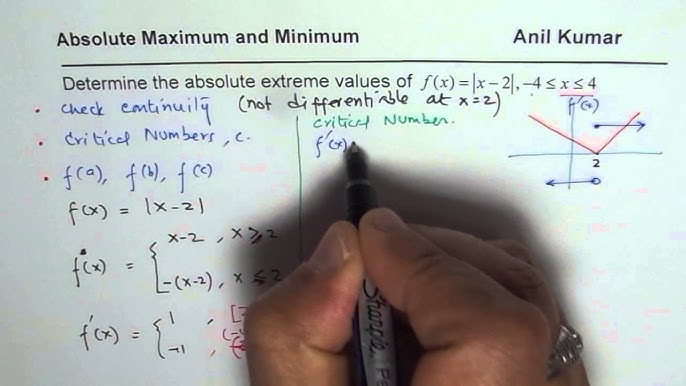 Absolute Maximum and Minimum Anil Kumar
Determine the absolute extreme values of f(x) = |x − 2|, −4 ≤ x ≤ 4
• check continuity (not differentiable at x=2)
• Critical Numbers, c.
• f(a), f(b), f(c)
f(x) = |x-2|
f'(x) = { x-2, x ≥ 2
-(x-2), x ≤ 2
f'(x) = { 1 ,
-1 ,
Critical Number.
f'(x)
f'(x)
2
Sharpie